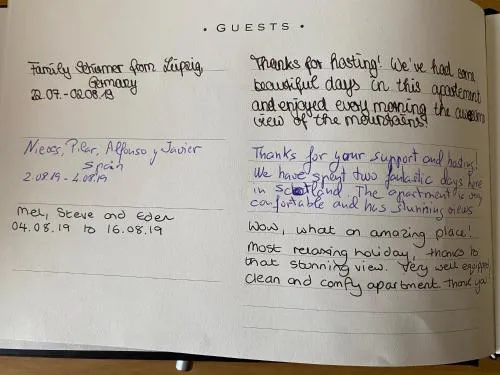 • GUESTS •
Family Schirmer from Leipzig,
Germany
22.07.-02.08.19
Thanks for hosting! We've had some
beautiful days in this apartement
and enjoyed every morning the awesome
view of the mountains!
Nieves, Pilar, Alfonso y Javier
Spain
2.08.19 - 4.08.19
Thanks for your support and hosting!
We have spent two fantastic days here
in Scotland. The apartment is very
comfortable and has stunning views
Mel, Steve and Eden
04.08.19 to 16.08.19
Wow, what an amazing place!
Most relaxing holiday, thanks to
that stunning view. Very well equipped
clean and comfy apartment. Thank you!